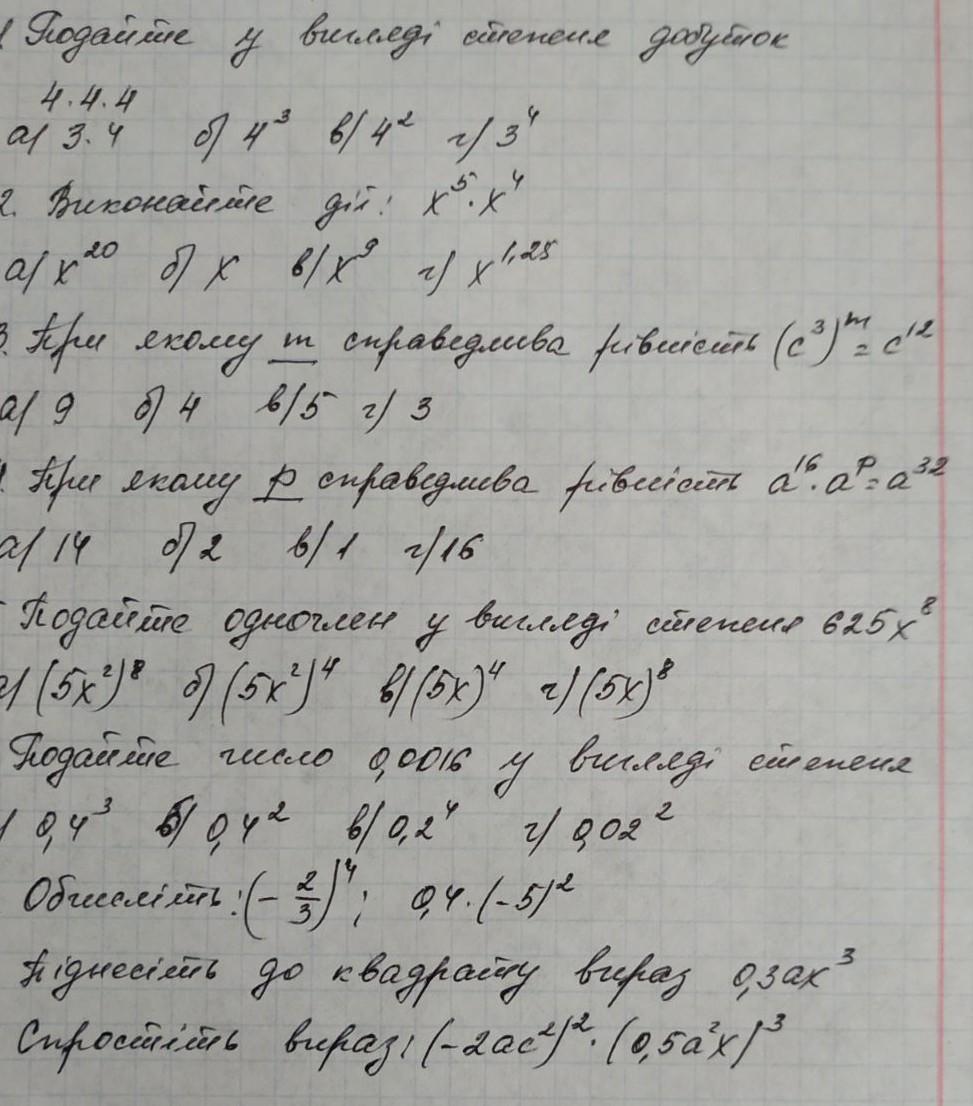 1 Подайте у вигляді степеня добуток
4·4·4
а) 3·4 б) 4³ в) 4² г) 3⁴
2. Виконайте дії: x⁵·x⁴
а) x²⁰ б) x в) x⁹ г) x¹'²⁵
3. При якому m справедлива рівність (c³)ᵐ = c¹²
а) 9 б) 4 в) 5 г) 3
4. При якому p справедлива рівність a¹⁶·aᵖ = a³²
а) 14 б) 2 в) 1 г) 16
Подайте одночлен у вигляді степеня 625x⁸
а) (5x²)⁸ б) (5x²)⁴ в) (5x)⁴ г) (5x)⁸
Подайте число 0,0016 у вигляді степеня
) 0,4³ б) 0,4² в) 0,2⁴ г) 0,02²
Обчисліть: (-2/3)⁴; 0,4·(-5)²
Піднесіть до квадрату вираз 0,3ax³
Спростіть вираз: (-2ac²)²·(0,5a²x)³